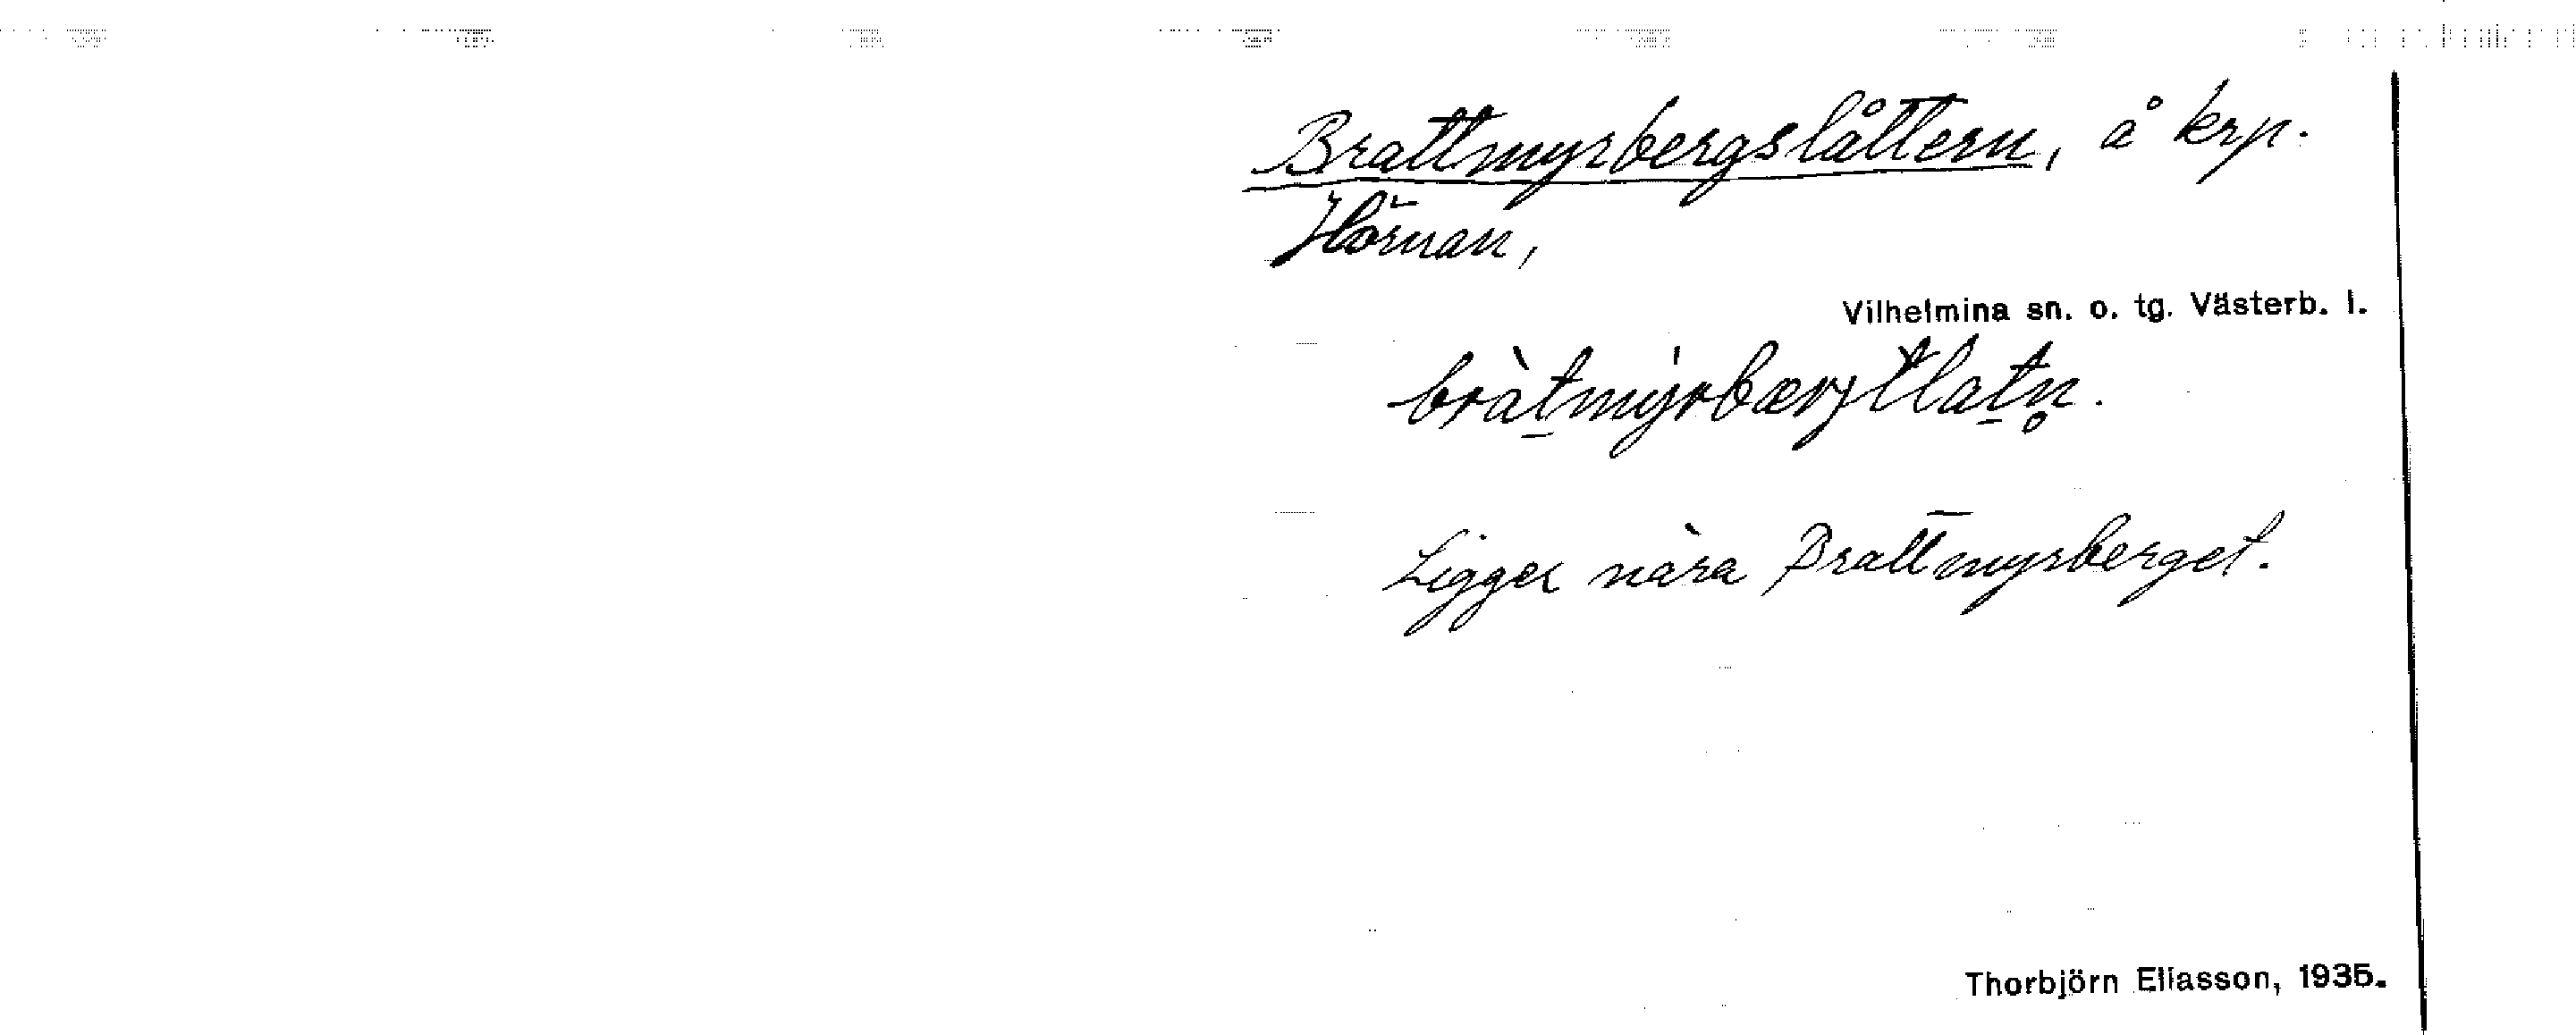 Brattmyrbergslåttern, å krp.
Hörnan,
Vilhelmina sn. o. tg. Västerb. l.
bràt̲mýrbærjtlat̲n̥.
Ligger nära Brattmyrberget.
Thorbjörn Eliasson, 1935.